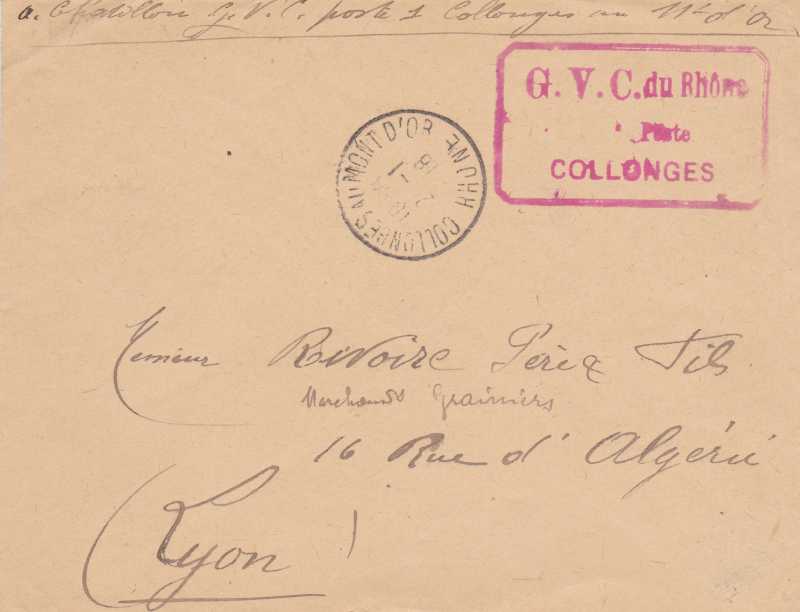 a. Chatillon G. V. C. poste 1 Collonges au Mt d'Or
G. V. C. du Rhône
Poste
COLLONGES
COLLONGES AU MONT D'OR RHONE
Rivoire Père & Fils
Marchands Grainiers
16 Rue d'Algérie
Lyon